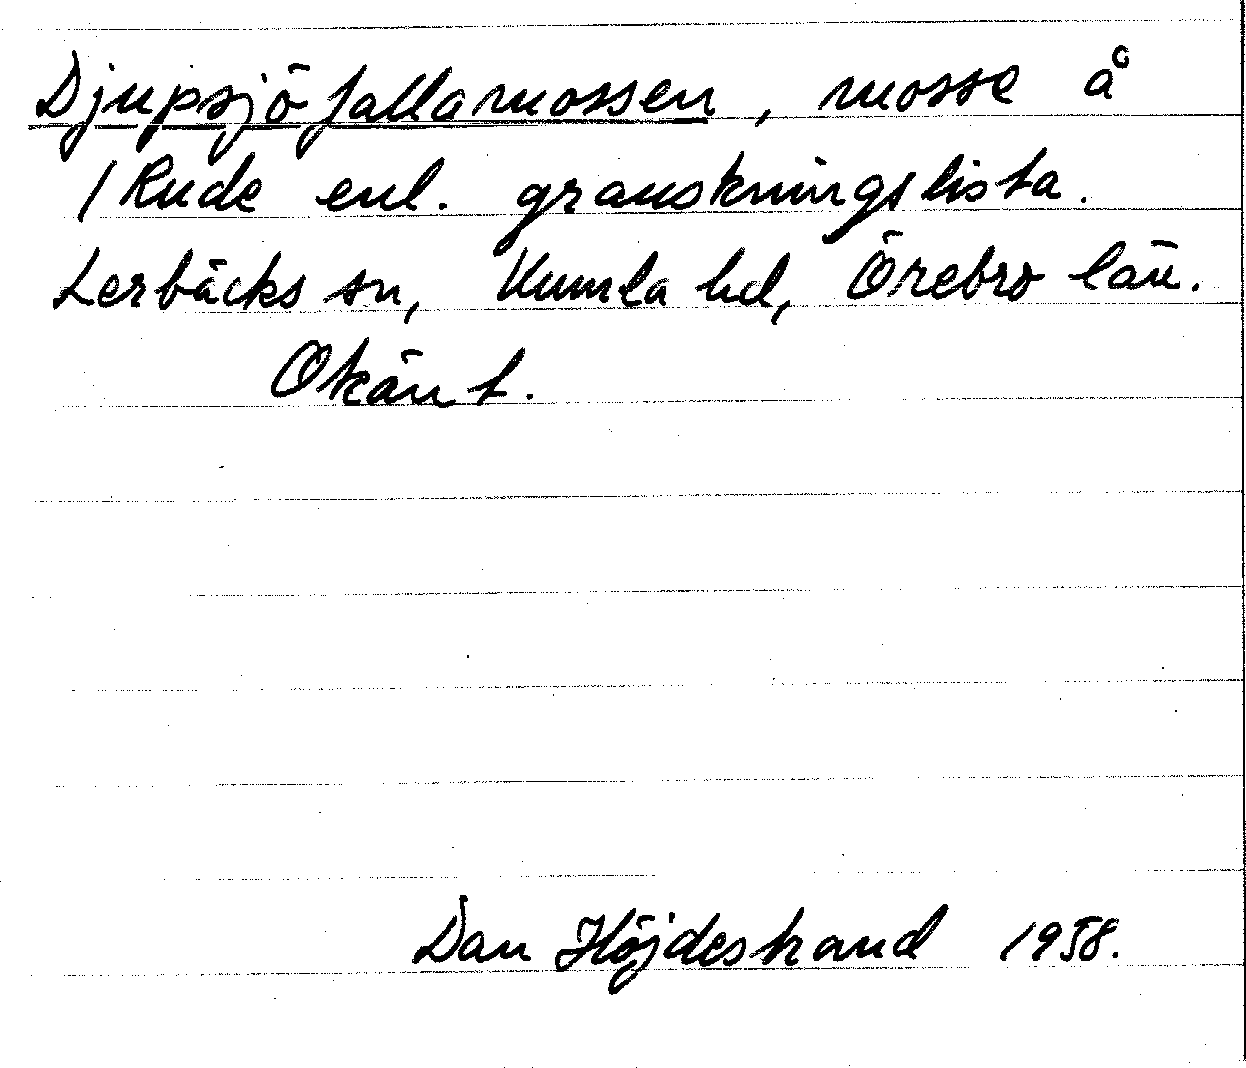 Djupsjöfallamossen, mosse å
/Rude enl. granskningslista.
Lerbäcks sn, Kumla hd, Örebro län.
Okänt.
Dan Höjdestrand 1958.